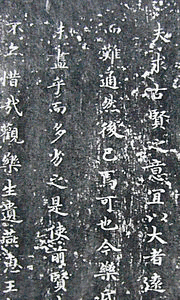 夫求古賢之意宜以大者遠
而難通然後已焉可也今樂氏
未盡乎而多劣之是使前賢
不亦惜哉觀樂生遺燕惠王